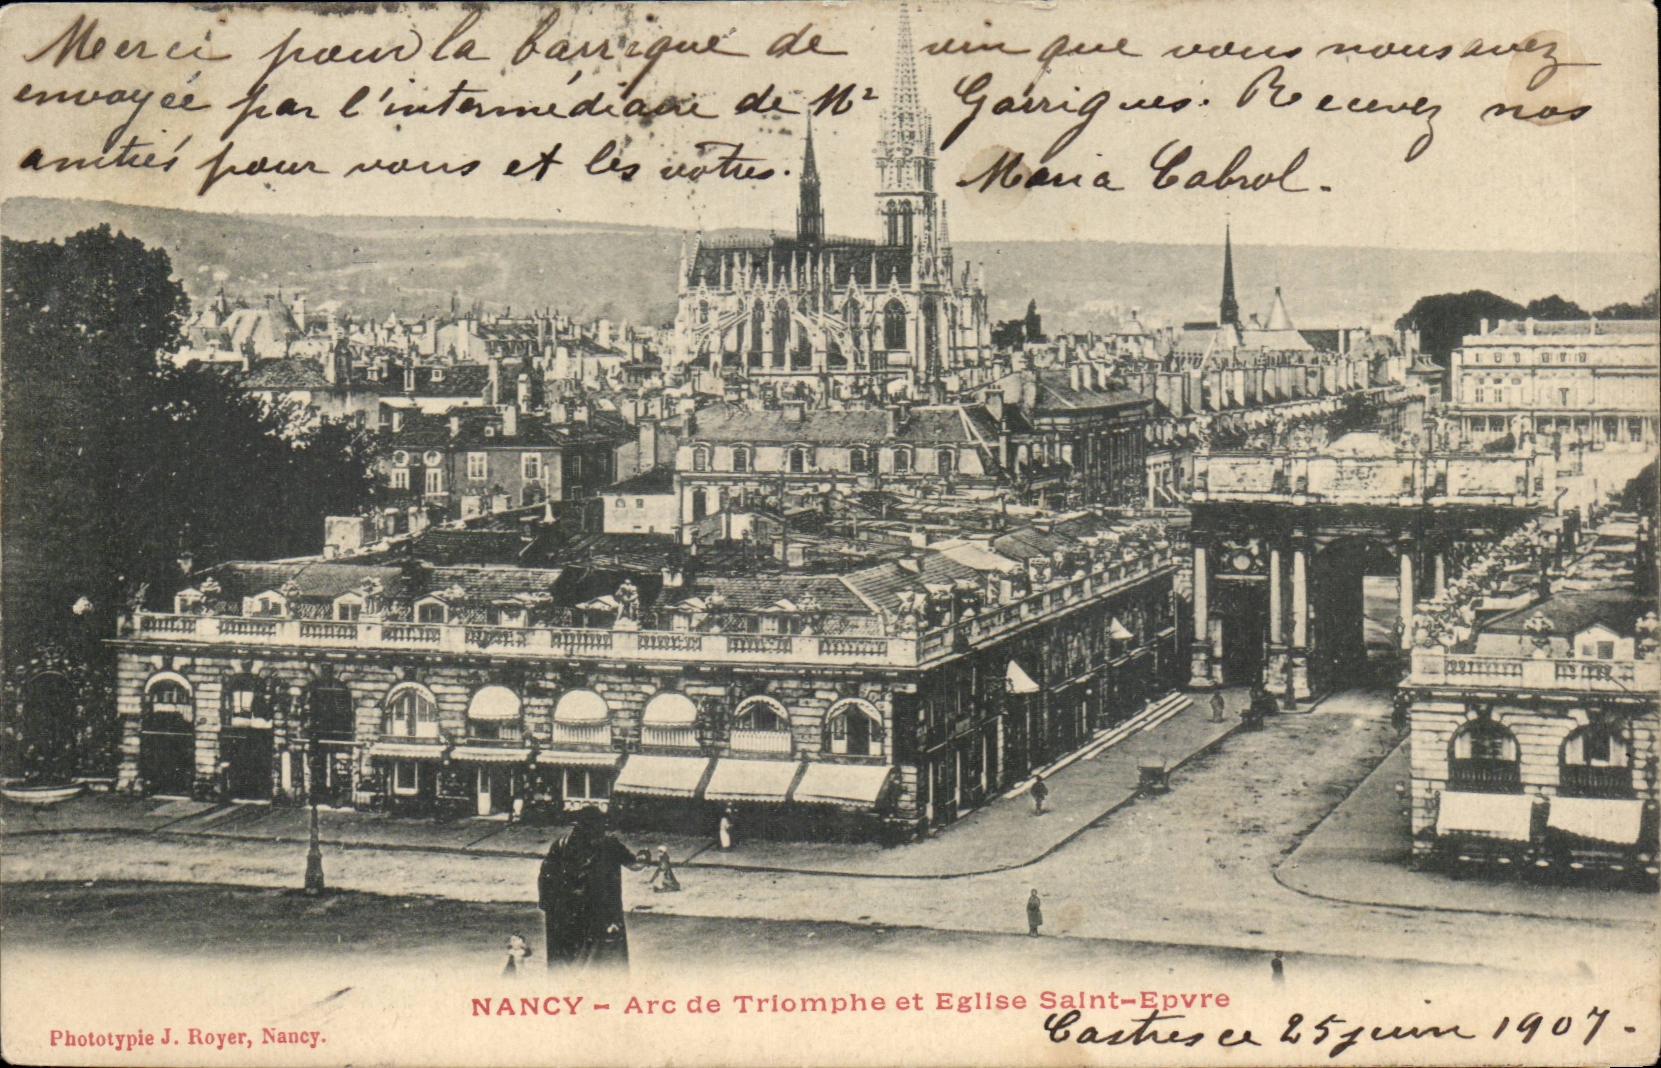 Merci pour la barrique de vin que vous nous avez
envoyée par l'intermédiaire de Mr Garrigues. Recevez nos
amitiés pour vous et les vôtres. Maria Cabrol.
NANCY - Arc de Triomphe et Eglise Saint-Epvre
Castres ce 25 juin 1907.
Phototypie J. Royer, Nancy.